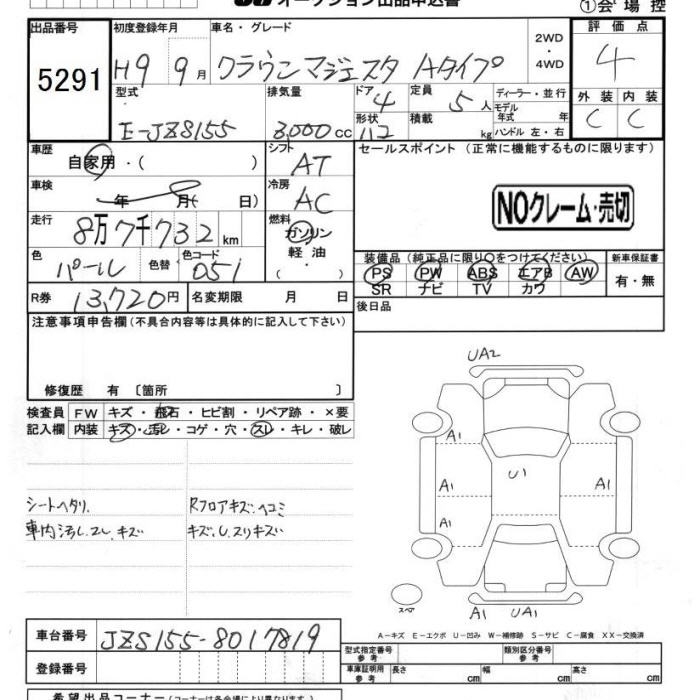 オークション出品申込書
①会場控
出品番号
5291
初度登録年月
H9 9月
車名・グレード
クラウンマジェスタ Aタイプ
2WD
・
4WD
評価点
4
外装 内装
C C
型式
E-JZS155
排気量
3,000cc
ドア
4
形状
112
定員
5人
積載
kg
ディーラー・並行
モデル
年式 年
ハンドル 左・右
車歴
自家用・( )
シフト
AT
セールスポイント(正常に機能するものに限ります)
NOクレーム・売切
車検
年 月( 日)
冷房
AC
走行
8万7千732km
燃料
ガソリン
軽油
( )
色
パール
色替
色コード
051
装備品(純正品に限り○をつけてください)
PS PW ABS エアB AW
SR ナビ TV カワ
新車保証書
有・無
R券 13,720円
名変期限 月 日
後日品
注意事項申告欄(不具合内容等は具体的に記入して下さい)
修復歴 有 〔箇所 〕
検査員
記入欄
FW キズ・飛石・ヒビ割・リペア跡・×要
内装 キズ・汚レ・コゲ・穴・スレ・キレ・破レ
シートヘタリ.
車内汚レ.スレ.キズ
Rフロアキズ.ヘコミ
キズ.U.スリキズ
UA2
A1
A1
U1
A1
A1
スペア
A1 UA1
A-キズ E-エクボ U-凹み W-補修跡 S-サビ C-腐食 XX-交換済
車台番号
JZS155-8017819
登録番号
型式指定番号
参考
類別区分番号
参考
車庫証明用
参考
長さ cm 幅 cm 高さ cm
希望出品コーナー(コーナーは各会場により異なります)